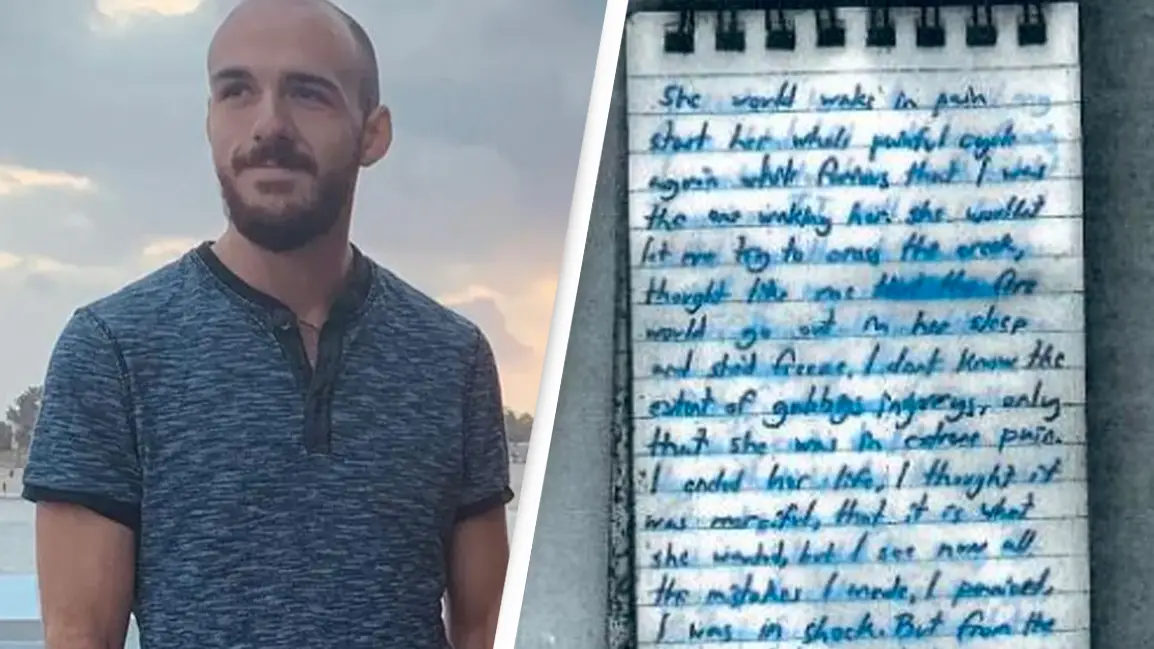 She would wake in pain
start her whole painful cycle
again while furious that I was
the one waking her. She wouldnt
let me try to cross the creek,
thought like me the fire
would go out in her sleep
and she'd freeze. I dont know the
extent of gabbys ingurys, only
that she was in extreme pain.
I ended her life, I thought it
was merciful, that it is what
she wanted, but I see now all
the mistakes I made, I panicked,
I was in shock. But from the